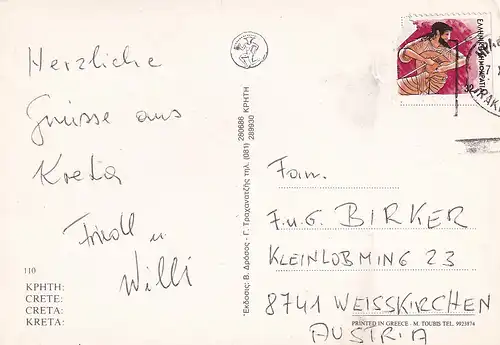 Herzliche
Grüsse aus
Kreta
Friedl u
Willi
110
ΚΡΗΤΗ:
CRETE:
CRETA:
KRETA:
Έκδοσις: Β. Δρόσος - Γ. Τραχανατζής τηλ. (081) 280686 289930 ΚΡΗΤΗ
ΕΛΛΗΝΙΚΗ ΔΗΜΟΚΡΑΤΙΑ
Fam.
F.u.G. BIRKER
KLEINLOBMING 23
8741 WEISSKIRCHEN
PRINTED IN GREECE - M. TOUBIS TEL. 9923874
AUSTRIA